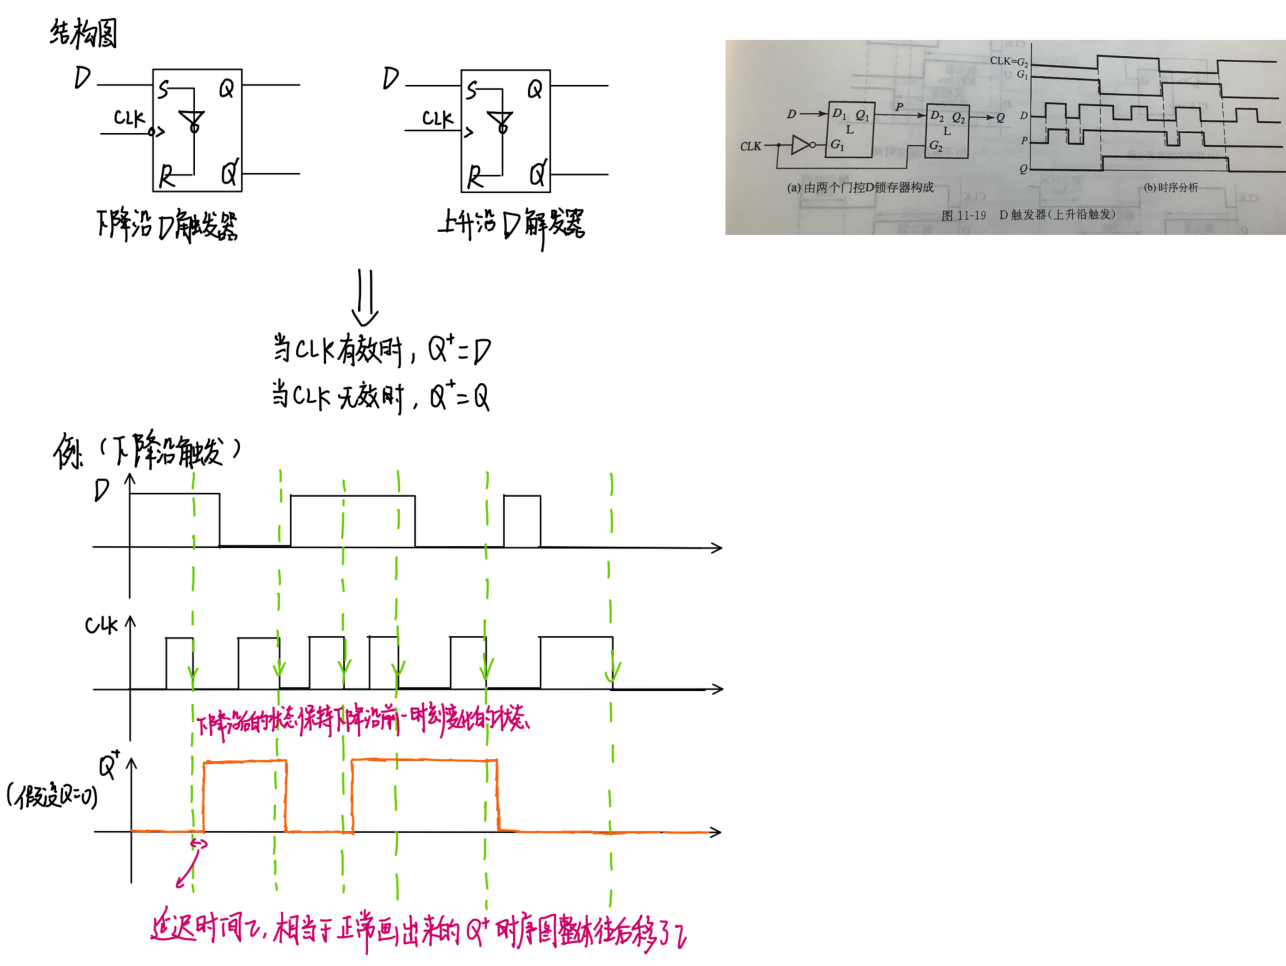 结构图
D
S
Q
CLK
R
Q'
下降沿D触发器
D
S
Q
CLK
R
Q'
上升沿D触发器
D
D₁ Q₁
L
G₁
P
D₂ Q₂
L
G₂
Q
CLK
(a) 由两个门控D锁存器构成
CLK=G₂
G₁
D
P
Q
(b) 时序分析
图 11-19 D 触发器(上升沿触发)
当CLK有效时, Q⁺=D
当CLK无效时, Q⁺=Q
例:(下降沿触发)
D
CLK
下降沿后的状态保持下降沿前一时刻变化的状态
Q⁺
(假设Q=0)
延迟时间τ, 相当于正常画出来的Q⁺时序图整体往后移了τ